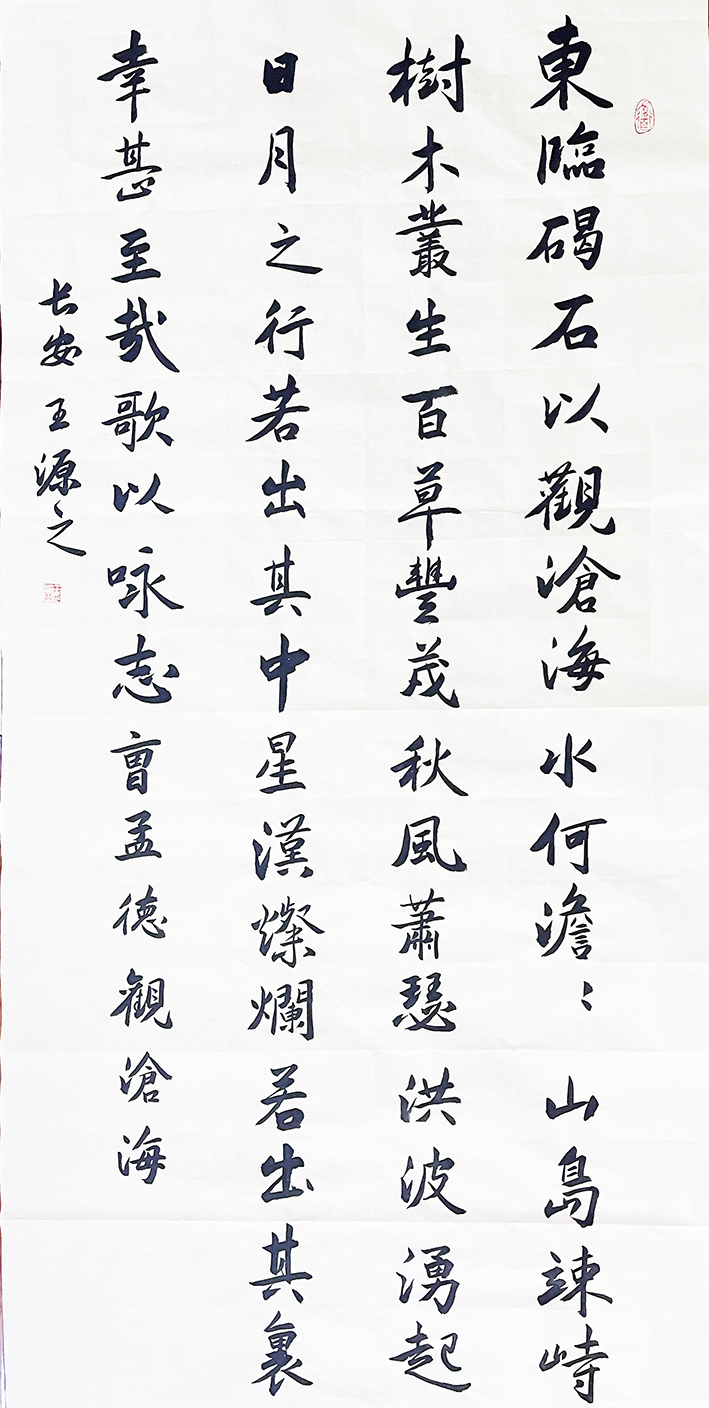 東臨碣石以觀滄海水何澹：山島竦峙
樹木叢生百草豐茂秋風蕭瑟洪波湧起
日月之行若出其中星漢燦爛若出其裏
幸甚至哉歌以咏志曹孟德觀滄海
长安王源之